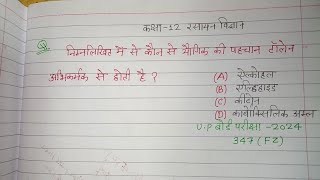 कक्षा-12 रसायन विज्ञान
Q. निम्नलिखित में से कौन से यौगिक की पहचान टॉलेन
अभिकर्मक से होती है ?
(A) ऐल्कोहल
(B) एल्डिहाइड
(C) कीटोन
(D) कार्बोक्सिलिक अम्ल
U.P बोर्ड परीक्षा -2024
347 (FZ)